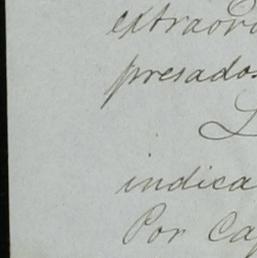 extraor
presados
L
indica
Por Ca